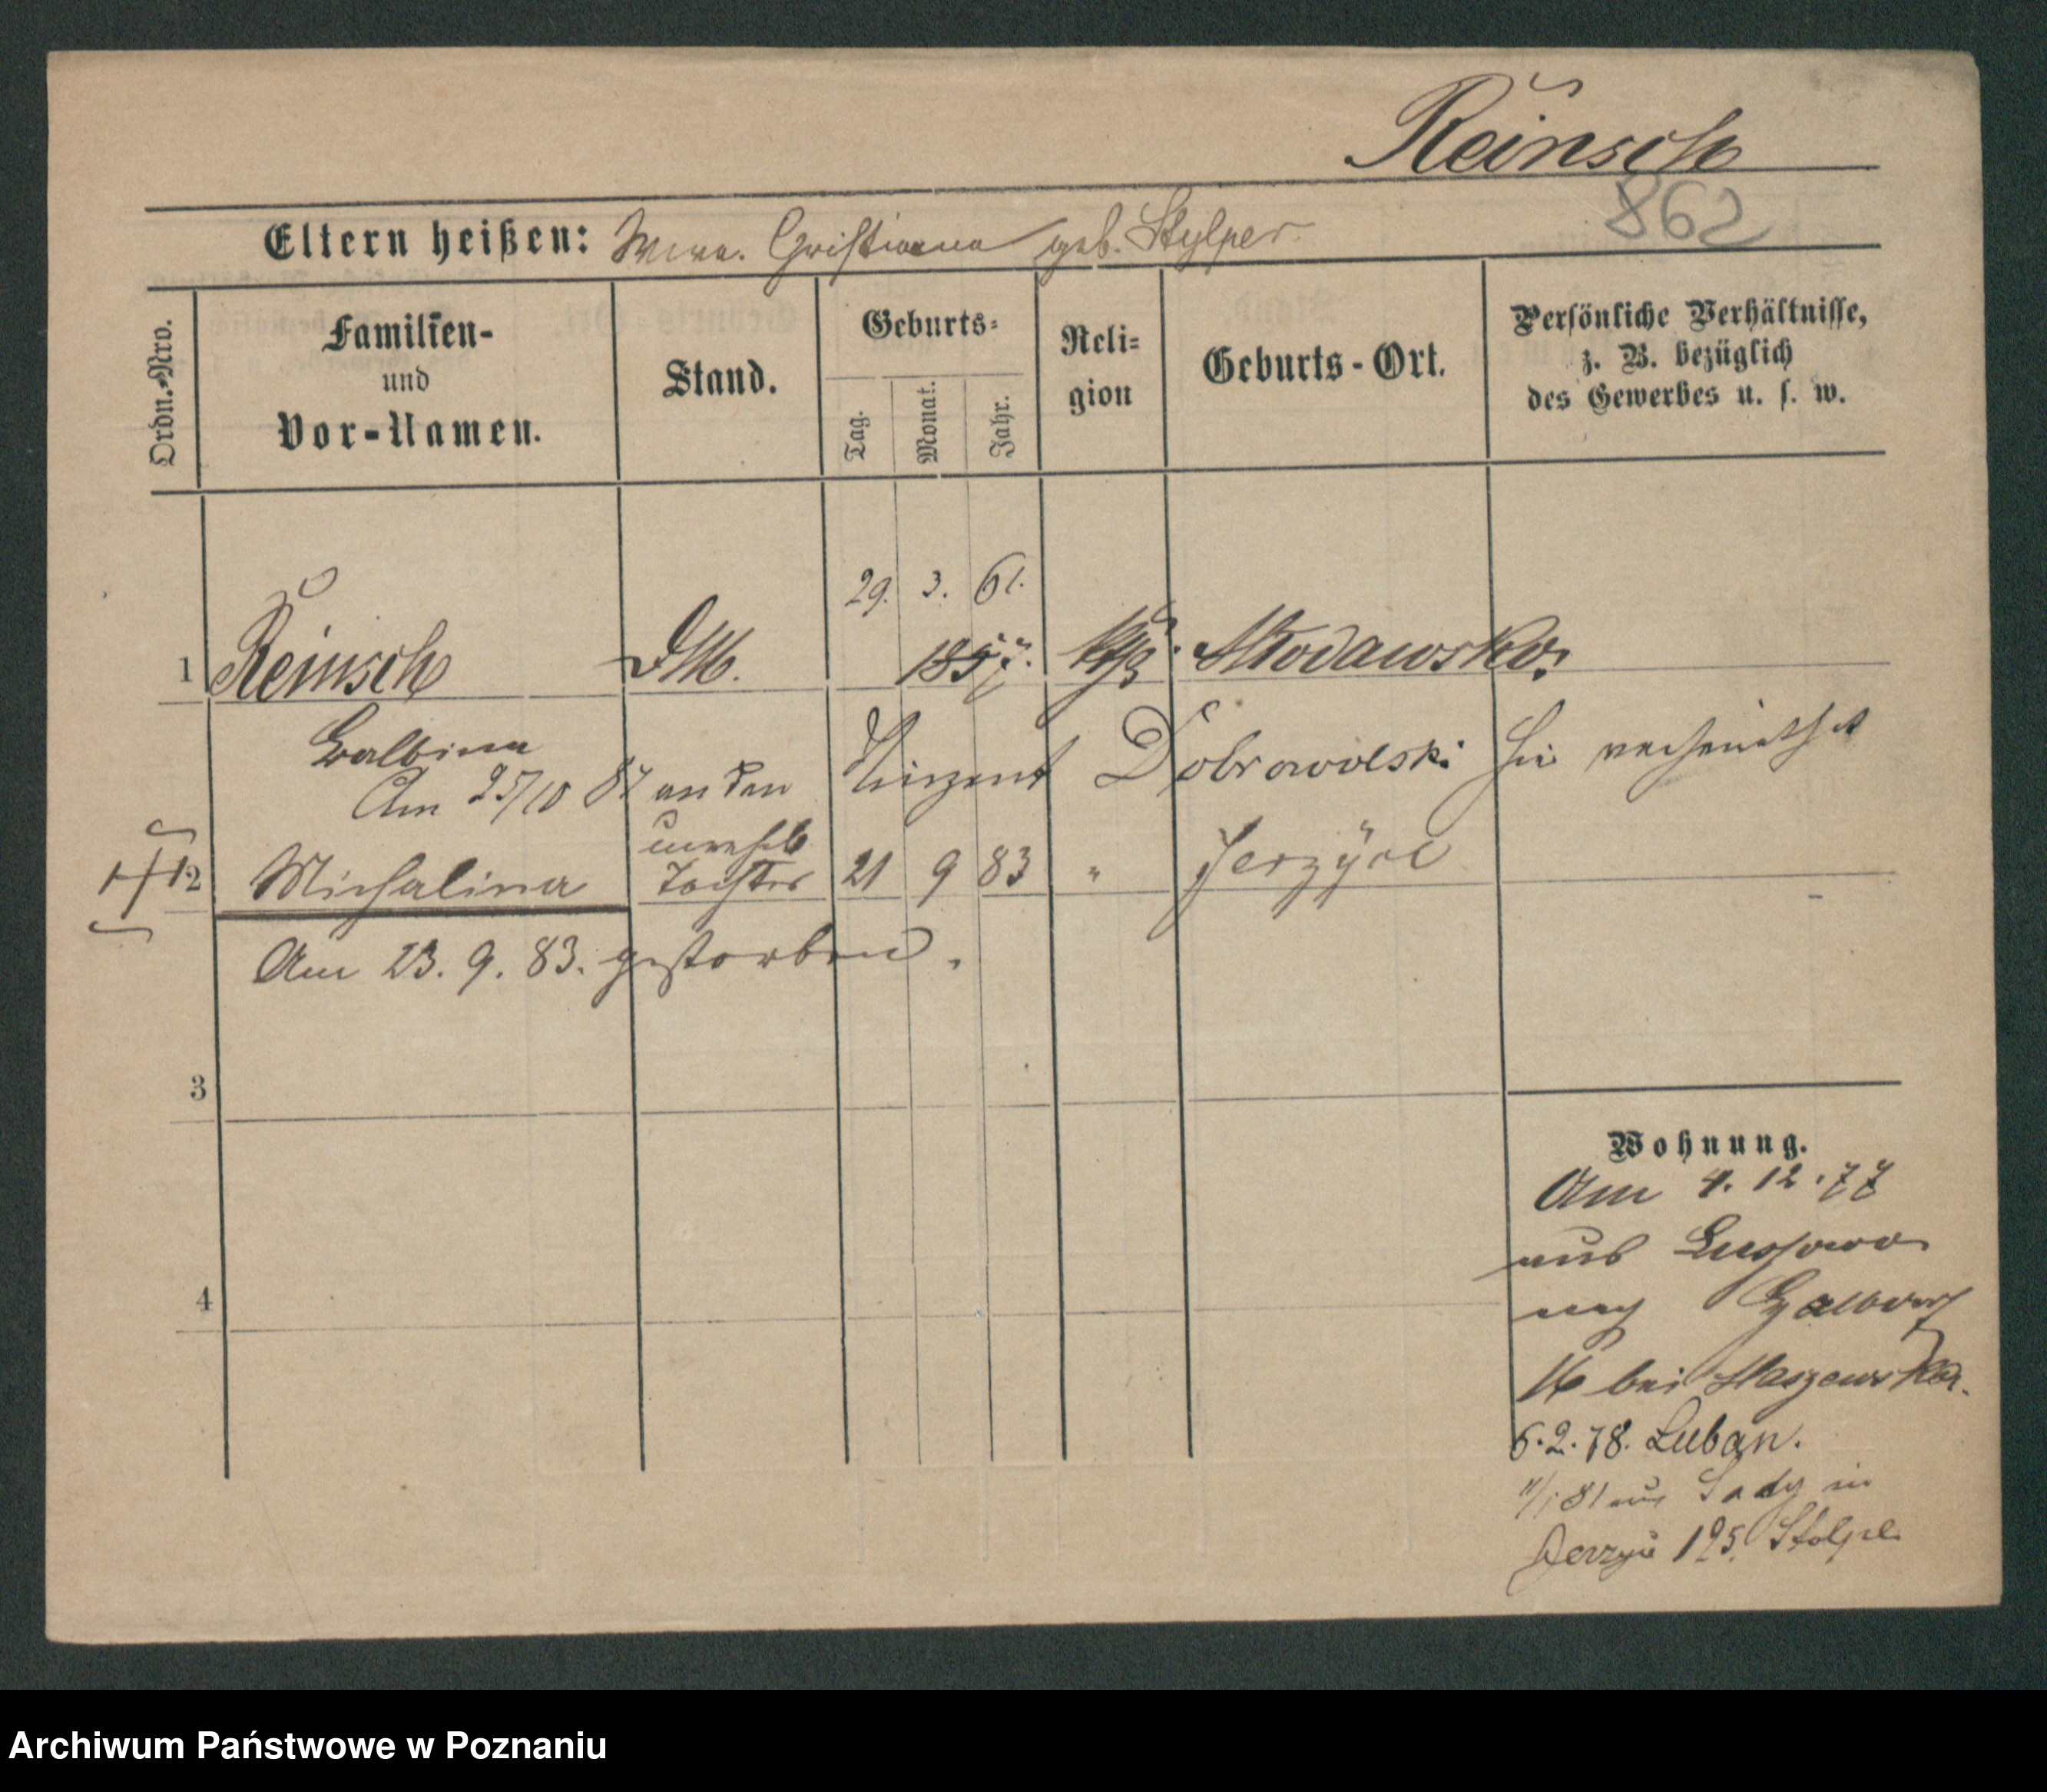 Reinsch
862
Eltern heißen: Christiana geb. Stylper.
Ordn.-Nro.
Familien-
und
Vor-Namen.
Stand.
Geburts-
Tag.
Monat.
Jahr.
Reli-
gion
Geburts-Ort.
Persönliche Verhältnisse,
z. B. bezüglich
des Gewerbes u. s. w.
29. 3. 61.
1 Reinsch DM. 1857. kth.
Balbina
Am 25/10 87 an den Vinzent Dobrowolski hier verheirathet
unehel.
2 Michalina Tochter 21 9 83 " Jerzyce
Am 23. 9. 83. gestorben.
3
4
Wohnung.
Am 4. 12. 77
aus Lussowo
nach
16 bei
6. 2. 78. Luban.
11/1 81 aus Sady in
Jerzyce 195. Stolpe
Archiwum Państwowe w Poznaniu